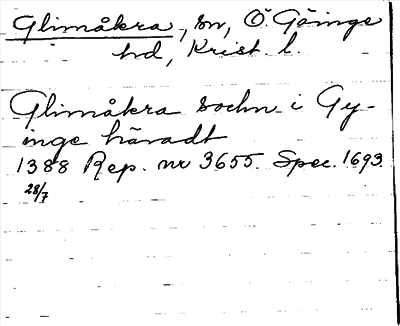 Glimåkra, sn, Ö. Göinge
hd, Krist. l.
Glimåkra sochn i Gy-
inge häradt
1388 Rep. nr 3655. Spec. 1693.
28/7